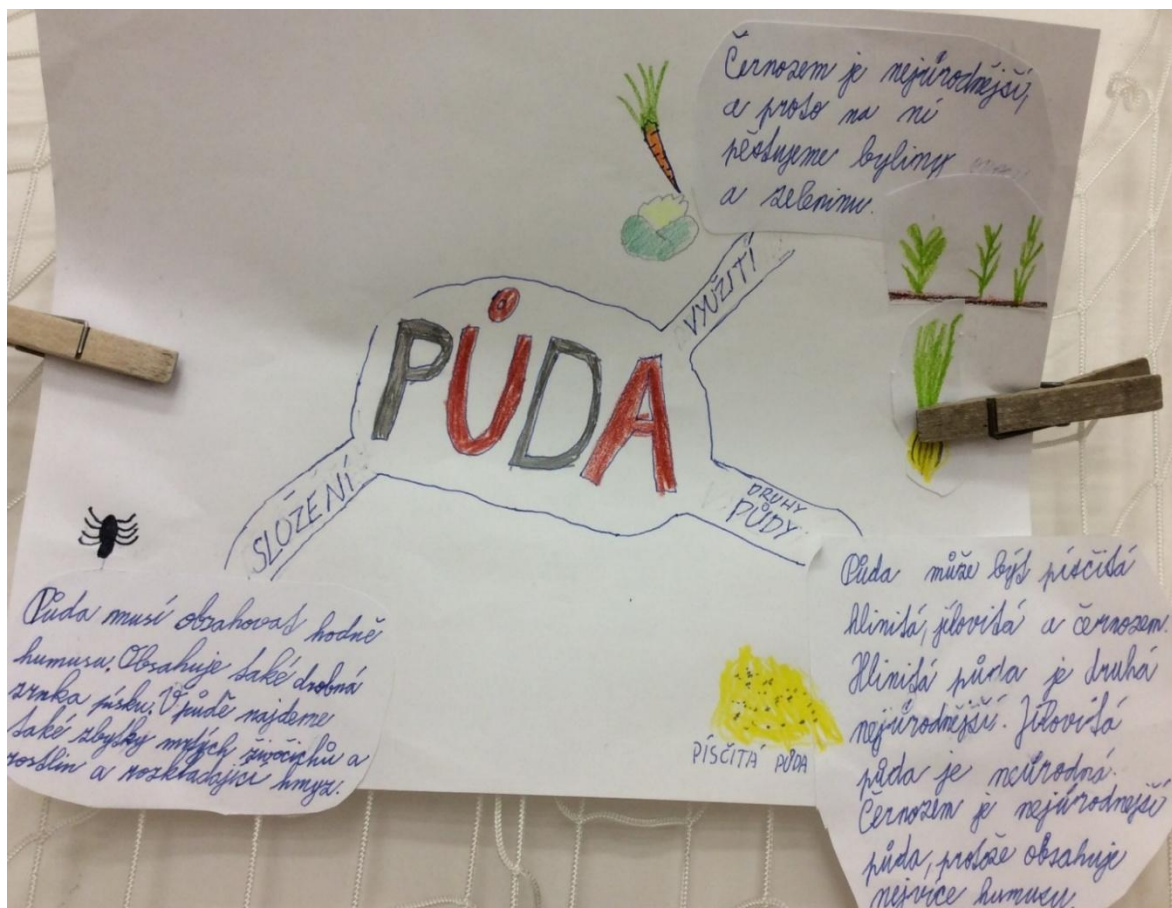 Černozem je nejúrodnější,
a proto na ní
pěstujeme byliny
a zeleninu.
VYUŽITÍ
PŮDA
SLOŽENÍ
DRUHY
PŮDY
Půda musí obsahovat hodně
humusu. Obsahuje také drobná
zrnka písku. V půdě najdeme
také zbytky mrtvých živočichů a
rostlin a rozkládající hmyz.
PÍSČITÁ PŮDA
Půda může být písčitá
hlinitá, jílovitá a černozem.
Hlinitá půda je druhá
nejúrodnější. Jílovitá
půda je neúrodná.
Černozem je nejúrodnejší
půda, protože obsahuje
nejvíce humusu.